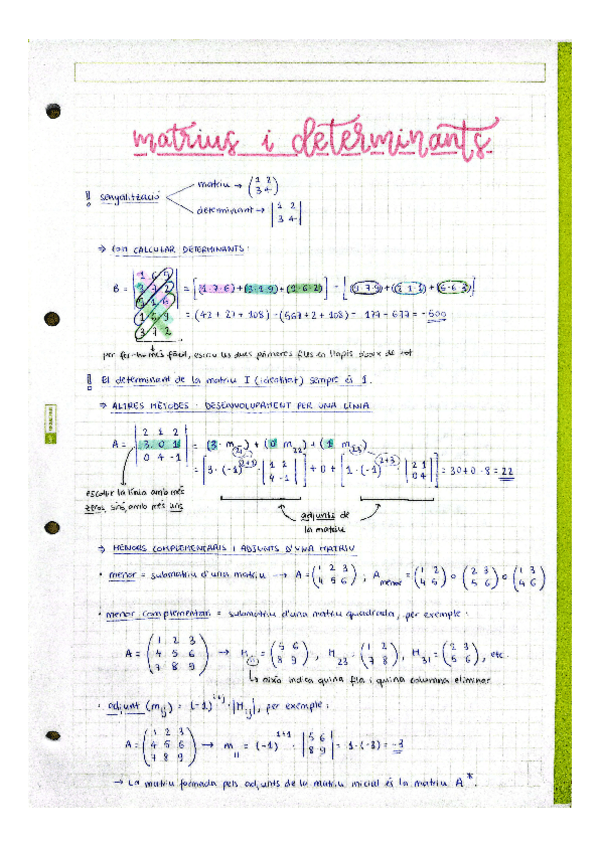 matrius i determinants
! senyalització
matriu → (1 2 / 3 4)
determinant → |1 2 / 3 4|
⇒ COM CALCULAR DETERMINANTS:
B = |1 6 9 / 3 7 2 / 9 1 6| 1 6 9 / 3 7 2 = [(1·7·6)+(3·1·9)+(9·6·2)] - [(9·7·9)+(2·1·1)+(6·6·3)]
= (42 + 27 + 108) - (567 + 2 + 108) = 177 - 677 = -500
per fer-ho més fàcil, escriu les dues primeres files en llapis a sota de tot
! El determinant de la matriu I (identitat) sempre és 1.
⇒ ALTRES MÈTODES: DESENVOLUPAMENT PER UNA LÍNIA
A = |2 1 2 / 3 0 1 / 0 4 -1| = (3· m21) + (0 m22) + (1 m23)
= [3·(-1)^2+1 · |1 2 / 4 -1|] + 0 + [1·(-1)^2+3 · |2 1 / 0 4|] = 30+0-8 = 22
escollir la línia amb més
zeros, sinó, amb més uns
adjunts de
la matriu
⇒ MENORS COMPLEMENTARIS I ADJUNTS D'UNA MATRIU
· menor = submatriu d'una matriu → A = (1 2 3 / 4 5 6) ; A menor = (1 2 / 4 5) o (2 3 / 5 6) o (1 3 / 4 6)
· menor complementari = submatriu d'una matriu quadrada, per exemple:
A = (1 2 3 / 4 5 6 / 7 8 9) → M11 = (5 6 / 8 9), M23 = (1 2 / 7 8), M31 = (2 3 / 5 6), etc.
↳ això indica quina fila i quina columna eliminar
· adjunt (mij) = (-1)^i+j · |Mij|, per exemple:
A = (1 2 3 / 4 5 6 / 7 8 9) → m11 = (-1)^1+1 · |5 6 / 8 9| = 1·(-3) = -3
→ La matriu formada pels adjunts de la matriu inicial és la matriu A*.